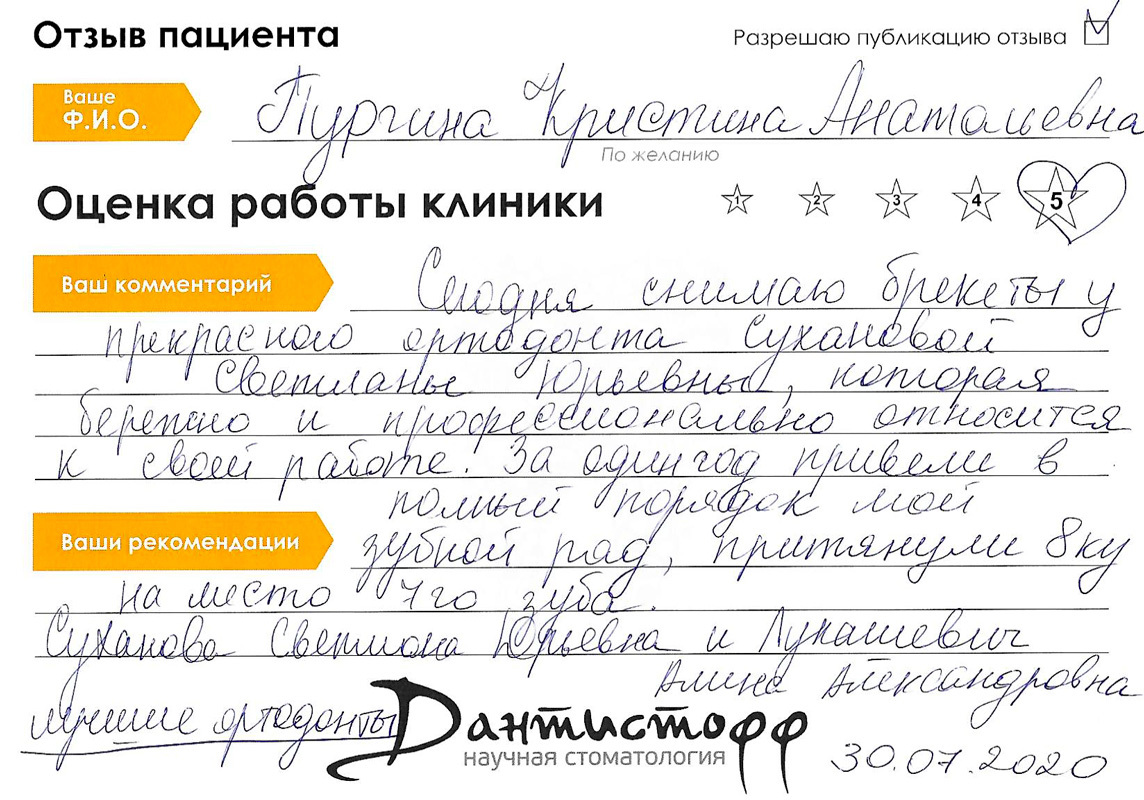 Отзыв пациента
Разрешаю публикацию отзыва
Ваше
Ф.И.О.
Пургина Кристина Анатольевна
По желанию
Оценка работы клиники
1 2 3 4 5
Ваш комментарий
Сегодня снимаю брекеты у
прекрасного ортодонта Сухановой
Светланы Юрьевны, которая
бережно и профессионально относится
к своей работе. За один год привели в
полный порядок мой
Ваши рекомендации
зубной ряд, притянули 8ку
на место 7го зуба.
Суханова Светлана Юрьевна и Лукашевич
Алина Александровна
лучшие ортодонты
Дантистофф
научная стоматология
30.07.2020